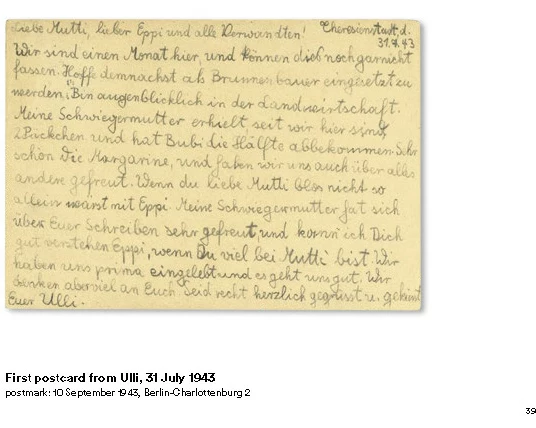 Liebe Mutti, lieber Eppi und alle Verwandten! Theresienstadt, d.
31.7.43
Wir sind einen Monat hier, und können dies noch garnicht
fassen. Hoffe demnächst als Brunnenbauer eingesetzt zu
werden. Bin augenblicklich in der Landwirtschaft.
Meine Schwiegermutter erhielt, seit wir hier sind,
2 Päckchen und hat Bubi die Hälfte abbekommen. Sehr
schön die Margarine, und haben wir uns auch über alles
andere gefreut. Wenn du liebe Mutti blos nicht so
allein wärst mit Eppi. Meine Schwiegermutter hat sich
über Euer Schreiben sehr gefreut, und kann ich Dich
gut verstehen Eppi, wenn Du viel bei Mutti bist. Wir
haben uns prima eingelebt und es geht uns gut. Wir
denken aber viel an Euch. Seid recht herzlich gegrüsst u. geküsst
Euer Ulli.
First postcard from Ulli, 31 July 1943
postmark: 10 September 1943, Berlin-Charlottenburg 2
39